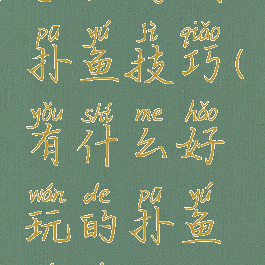 pū yú jì qiǎo
扑鱼技巧(
yǒu shí me hǎo
有什么好
wán de pū yú
玩的扑鱼